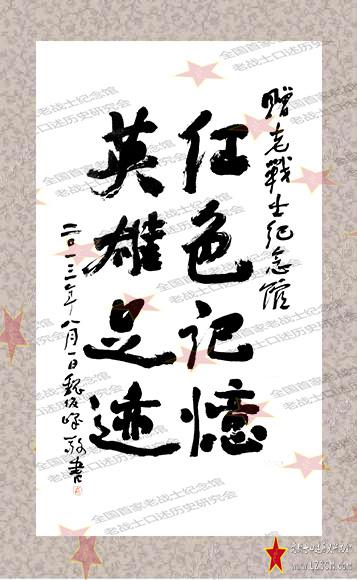 赠老戰士纪念馆
红色记憶
英雄足迹
二〇一三年八月一日魏傳峰敬書
全国首家老战士纪念馆
老战士口述历史研究会
全国首家老战士纪念馆
老战士口述历史研究会
全国首家老战士纪念馆
老战士口述历史研究会
全国首家老战士纪念馆
老战士口述历史研究会
全国首家老战士纪念馆
老战士口述历史研究会